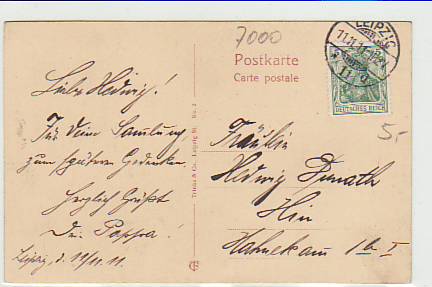 7000
Postkarte
Carte postale
LEIPZIG
11.11.11
DEUTSCHES REICH
5,-
Liebe Hedwig!
Für Deine Samlung
zum späteren Gedenken.
Herzlich Grüßt
Dein Pappa!
Leipzig, d. 11/11. 11.
Trinks & Co., Leipzig
Fräulein
Hedwig Donath
Hier
I b I